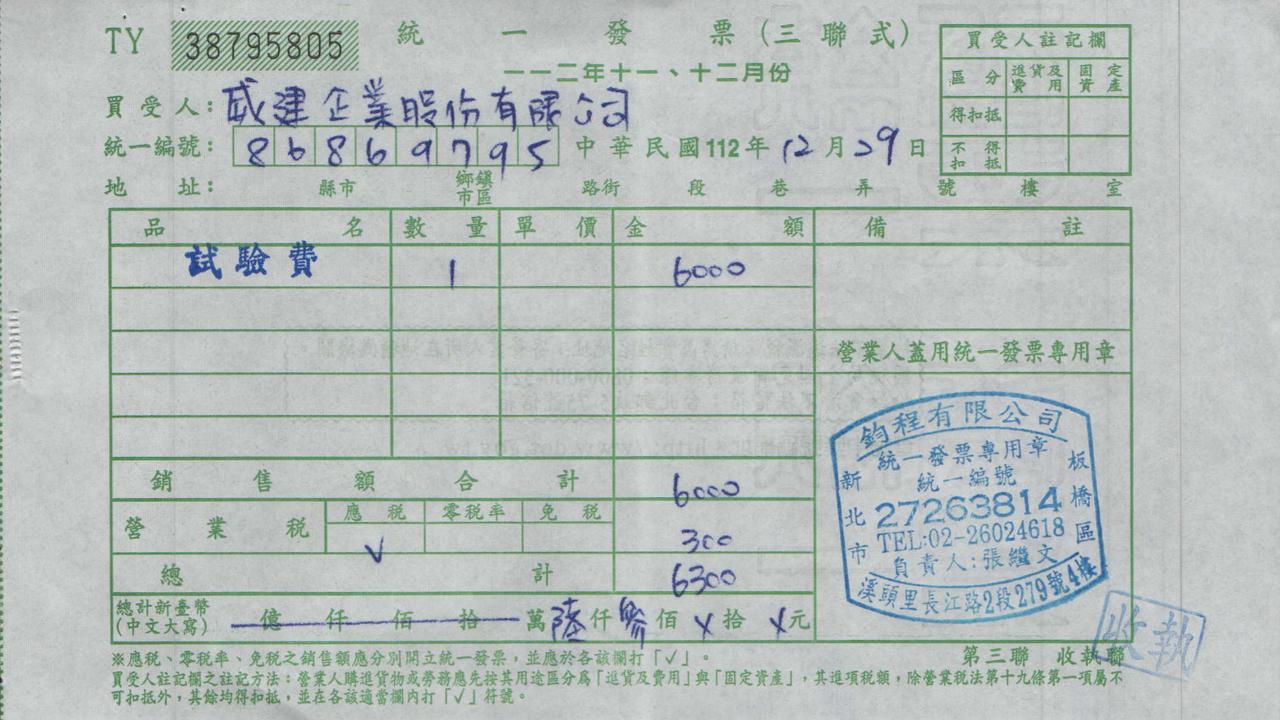 TY 38795805 統一發票(三聯式)
一一二年十一、十二月份
買受人註記欄
區分 進貨及費用 固定資產
得扣抵
不得扣抵
買受人:威建企業股份有限公司
統一編號:86869795 中華民國112年12月29日
地址: 縣市 鄉鎮市區 路街 段 巷 弄 號 樓 室
品名 數量 單價 金額 備註
試驗費 1 6000
營業人蓋用統一發票專用章
銷售額合計 6000
營業稅 應稅 零稅率 免稅
√ 300
總計 6300
總計新臺幣(中文大寫) 億仟佰拾萬陸仟參佰×拾×元
鈞程有限公司
統一發票專用章
統一編號
27263814
TEL:02-26024618
負責人:張繼文
新北市板橋區
溪頭里長江路2段279號4樓
第三聯 收執聯
收執
※應稅、零稅率、免稅之銷售額應分別開立統一發票,並應於各該欄打「√」。
買受人註記欄之註記方法:營業人購進貨物或勞務應先按其用途區分為「進貨及費用」與「固定資產」,其進項稅額,除營業稅法第十九條第一項屬不
可扣抵外,其餘均得扣抵,並在各該適當欄內打「√」符號。